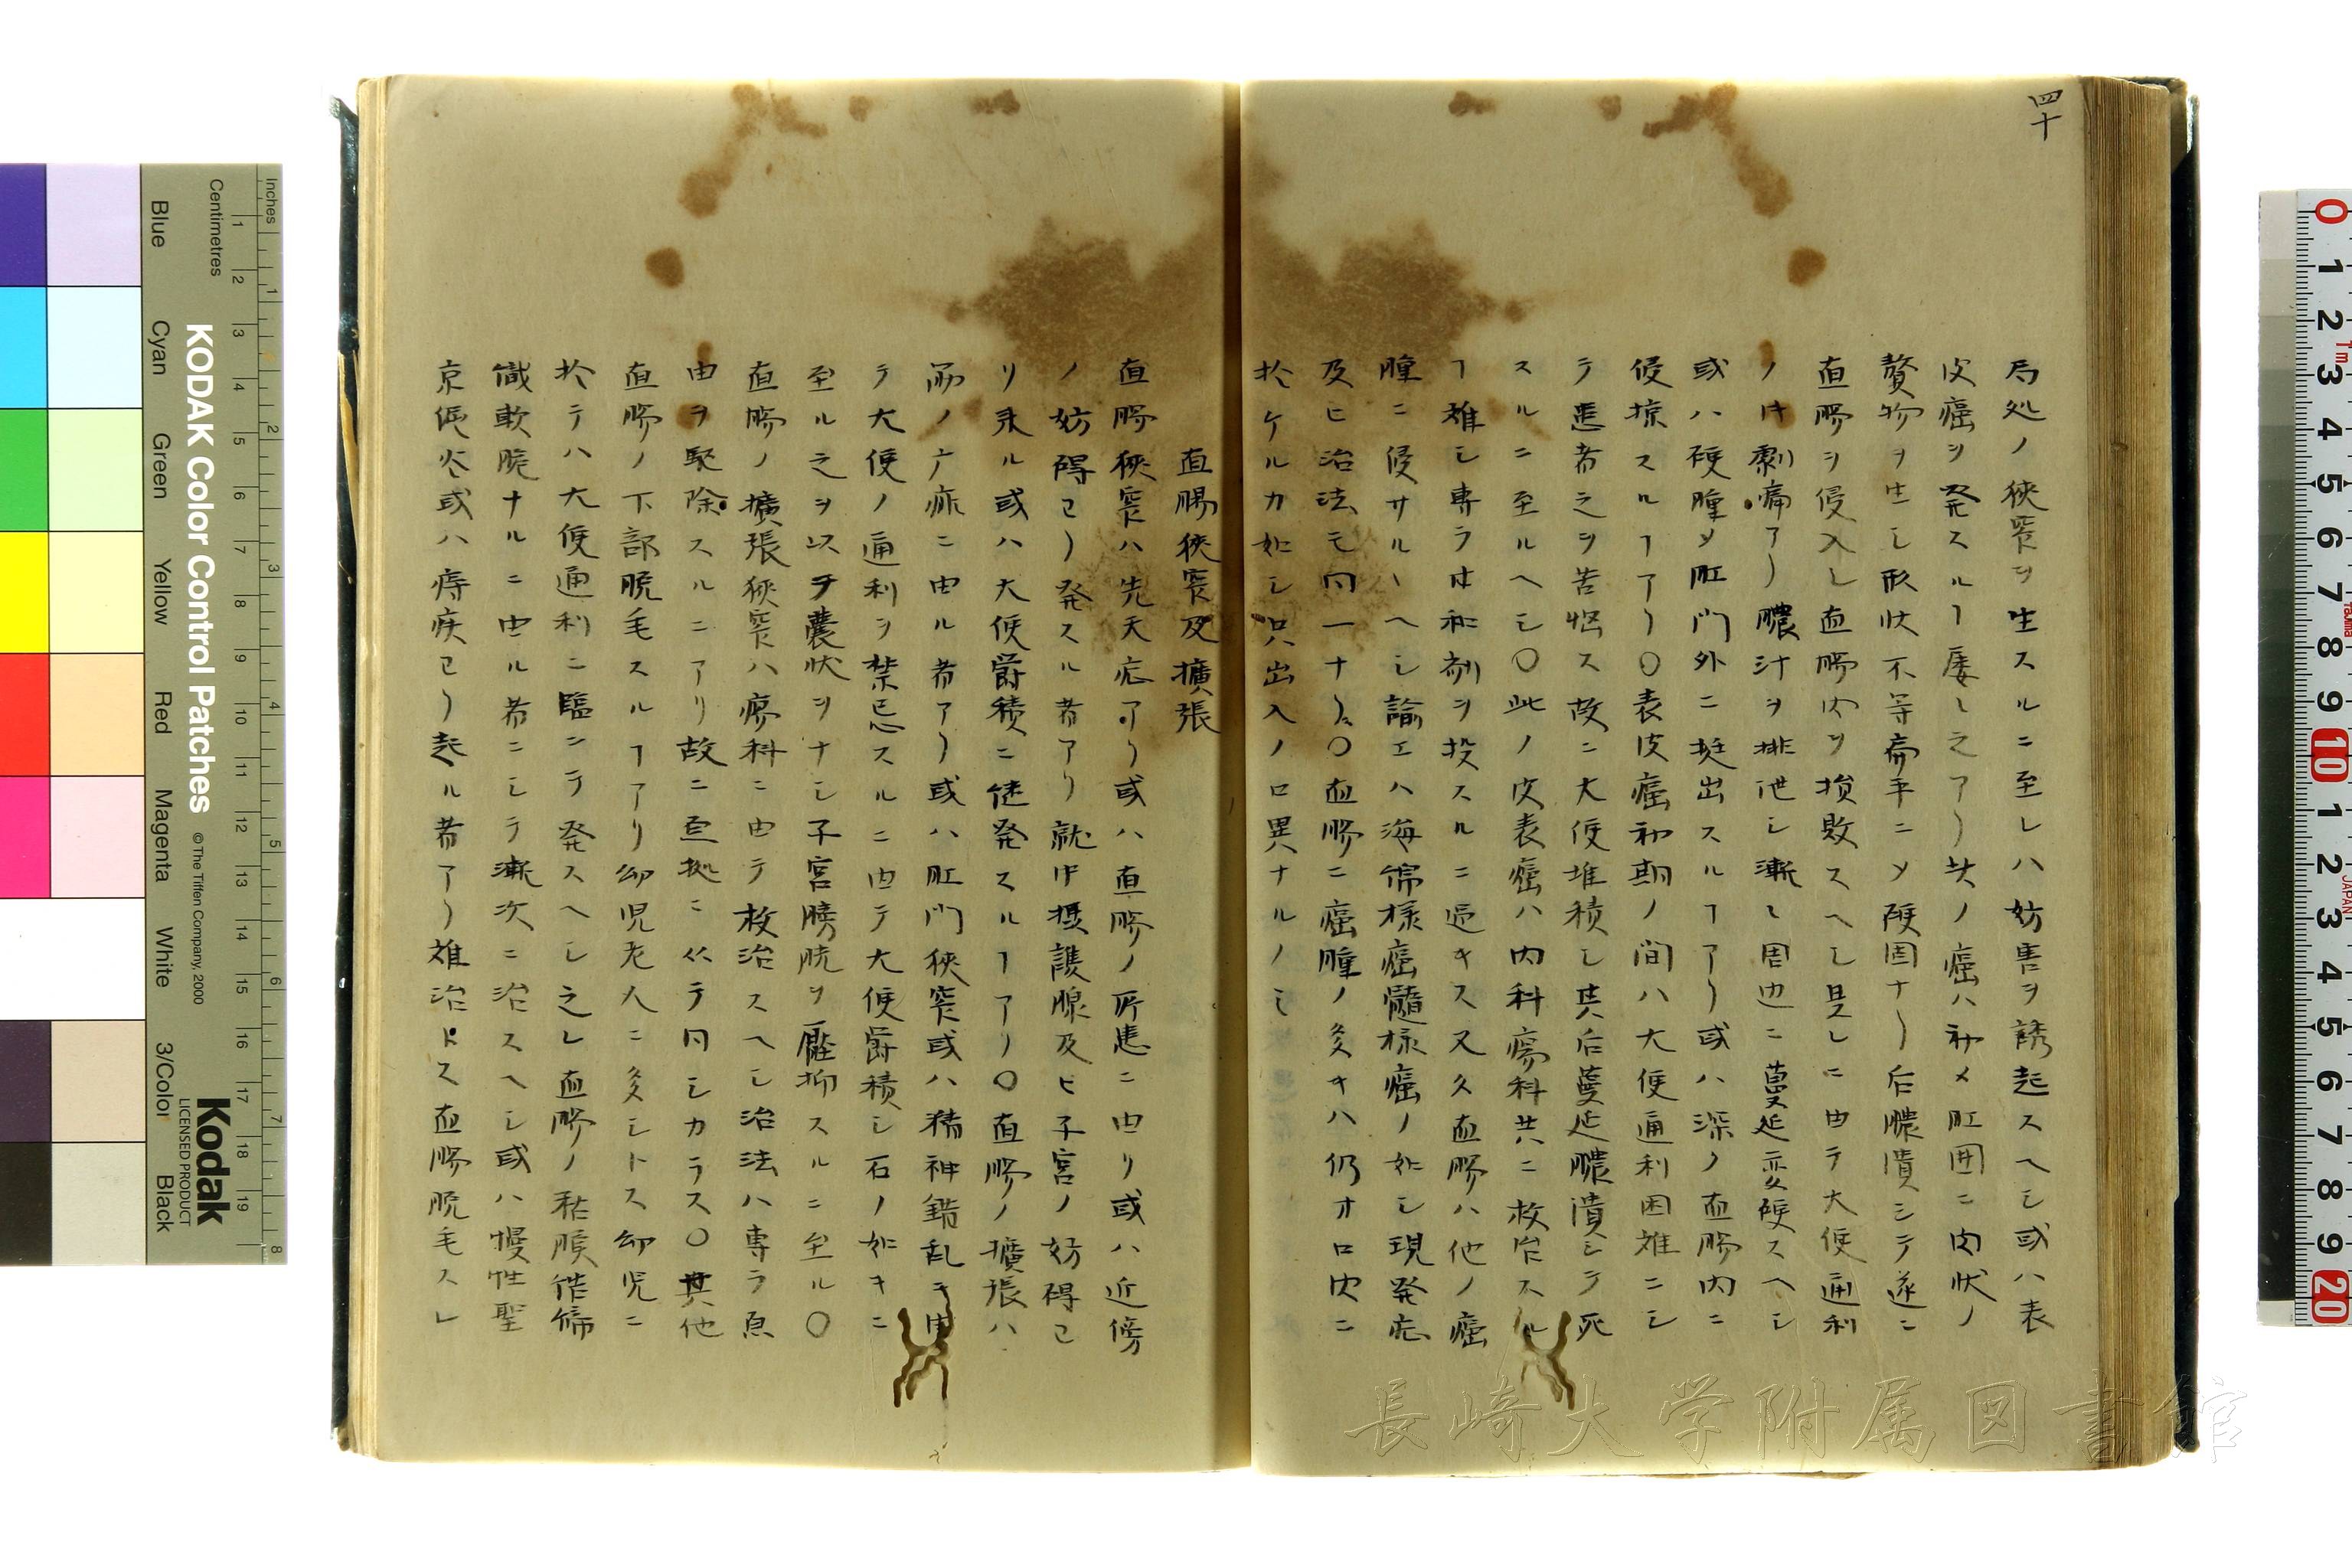 四十
局処ノ狹窄ヲ生スルニ至レハ妨害ヲ誘起スヘシ或ハ表
皮癌ヲ発スルヿ屡〻之アリ其ノ癌ハ初メ肛囲ニ肉状ノ
贅物ヲ生シ形状不等扁平ニメ硬固ナリ后膿潰シテ遂ニ
直膓ヲ侵入シ直膓内ヲ損敗スヘシ是レニ由テ大便通利
ノ時劇痛アリ膿汁ヲ排泄シ漸〻周辺ニ蔓延変硬スヘシ
或ハ硬腫メ肛門外ニ挺出スルヿアリ或ハ深ク直膓内ニ
侵掠スルヿアリ〇表皮癌初期ノ間ハ大便通利困難ニシ
テ患者之ヲ苦悩ス故ニ大便堆積シ其后蔓延膿潰シテ死
スルニ至ルヘシ〇此ノ皮表癌ハ内科瘍科共ニ救治スル
ヿ難シ専ラ緩和剤ヲ投スルニ過キス又久直膓ハ他ノ癌
腫ニ侵サルヽヘシ諭エハ海綿様癌髓様癌ノ如シ現発症
及ヒ治法モ同一ナリ〇直膓ニ癌腫ノ多キハ仍オロ内ニ
於ケルカ如シ只出入ノロ異ナルノミ
直腸狹窄及擴張
直膓狹窄ハ先天症アリ或ハ直膓ノ所患ニ由リ或ハ近傍
ノ妨碍ヨリ発スル者アリ就中摂護腺及ヒ子宮ノ妨碍ヨ
リ来ル或ハ大便欝積ニ継発スルヿアリ〇直膓ノ擴張ハ
痳痺ニ由ル者アリ或ハ肛門狹窄或ハ精神錯乱ニ由
テ大便ノ通利ヲ禁忌スルニ由テ大便欝積シ石ノ如キニ
至ル之ヲ以テ嚢状ヲナシ子宮膀胱ヲ壓抑スルニ至ル〇
直膓ノ擴張狹窄ハ瘍科ニ由テ救治スヘシ治法ハ専ラ原
由ヲ駆除スルニアリ故ニ一定ニテ同シカラス〇其他
直膓ノ下部脱毛スルヿアリ幼児老人ニ多シトス幼児ニ
於テハ大便通利ニ臨ンテ発スヘシ之レ直膓ノ粘膜
織軟脆ナルニ由ル者ニシテ漸次ニ治スヘシ或ハ慢性
或ハ痔疾ヨリ起ル者アリ難治トス直膓脱毛スレ
Inches
Centimetres
KODAK Color Control Patches
© The Tiffen Company, 2000
Kodak
LICENSED PRODUCT
Blue
Cyan
Green
Yellow
Red
Magenta
White
3/Color
Black
JAPAN
長崎大学附属図書館